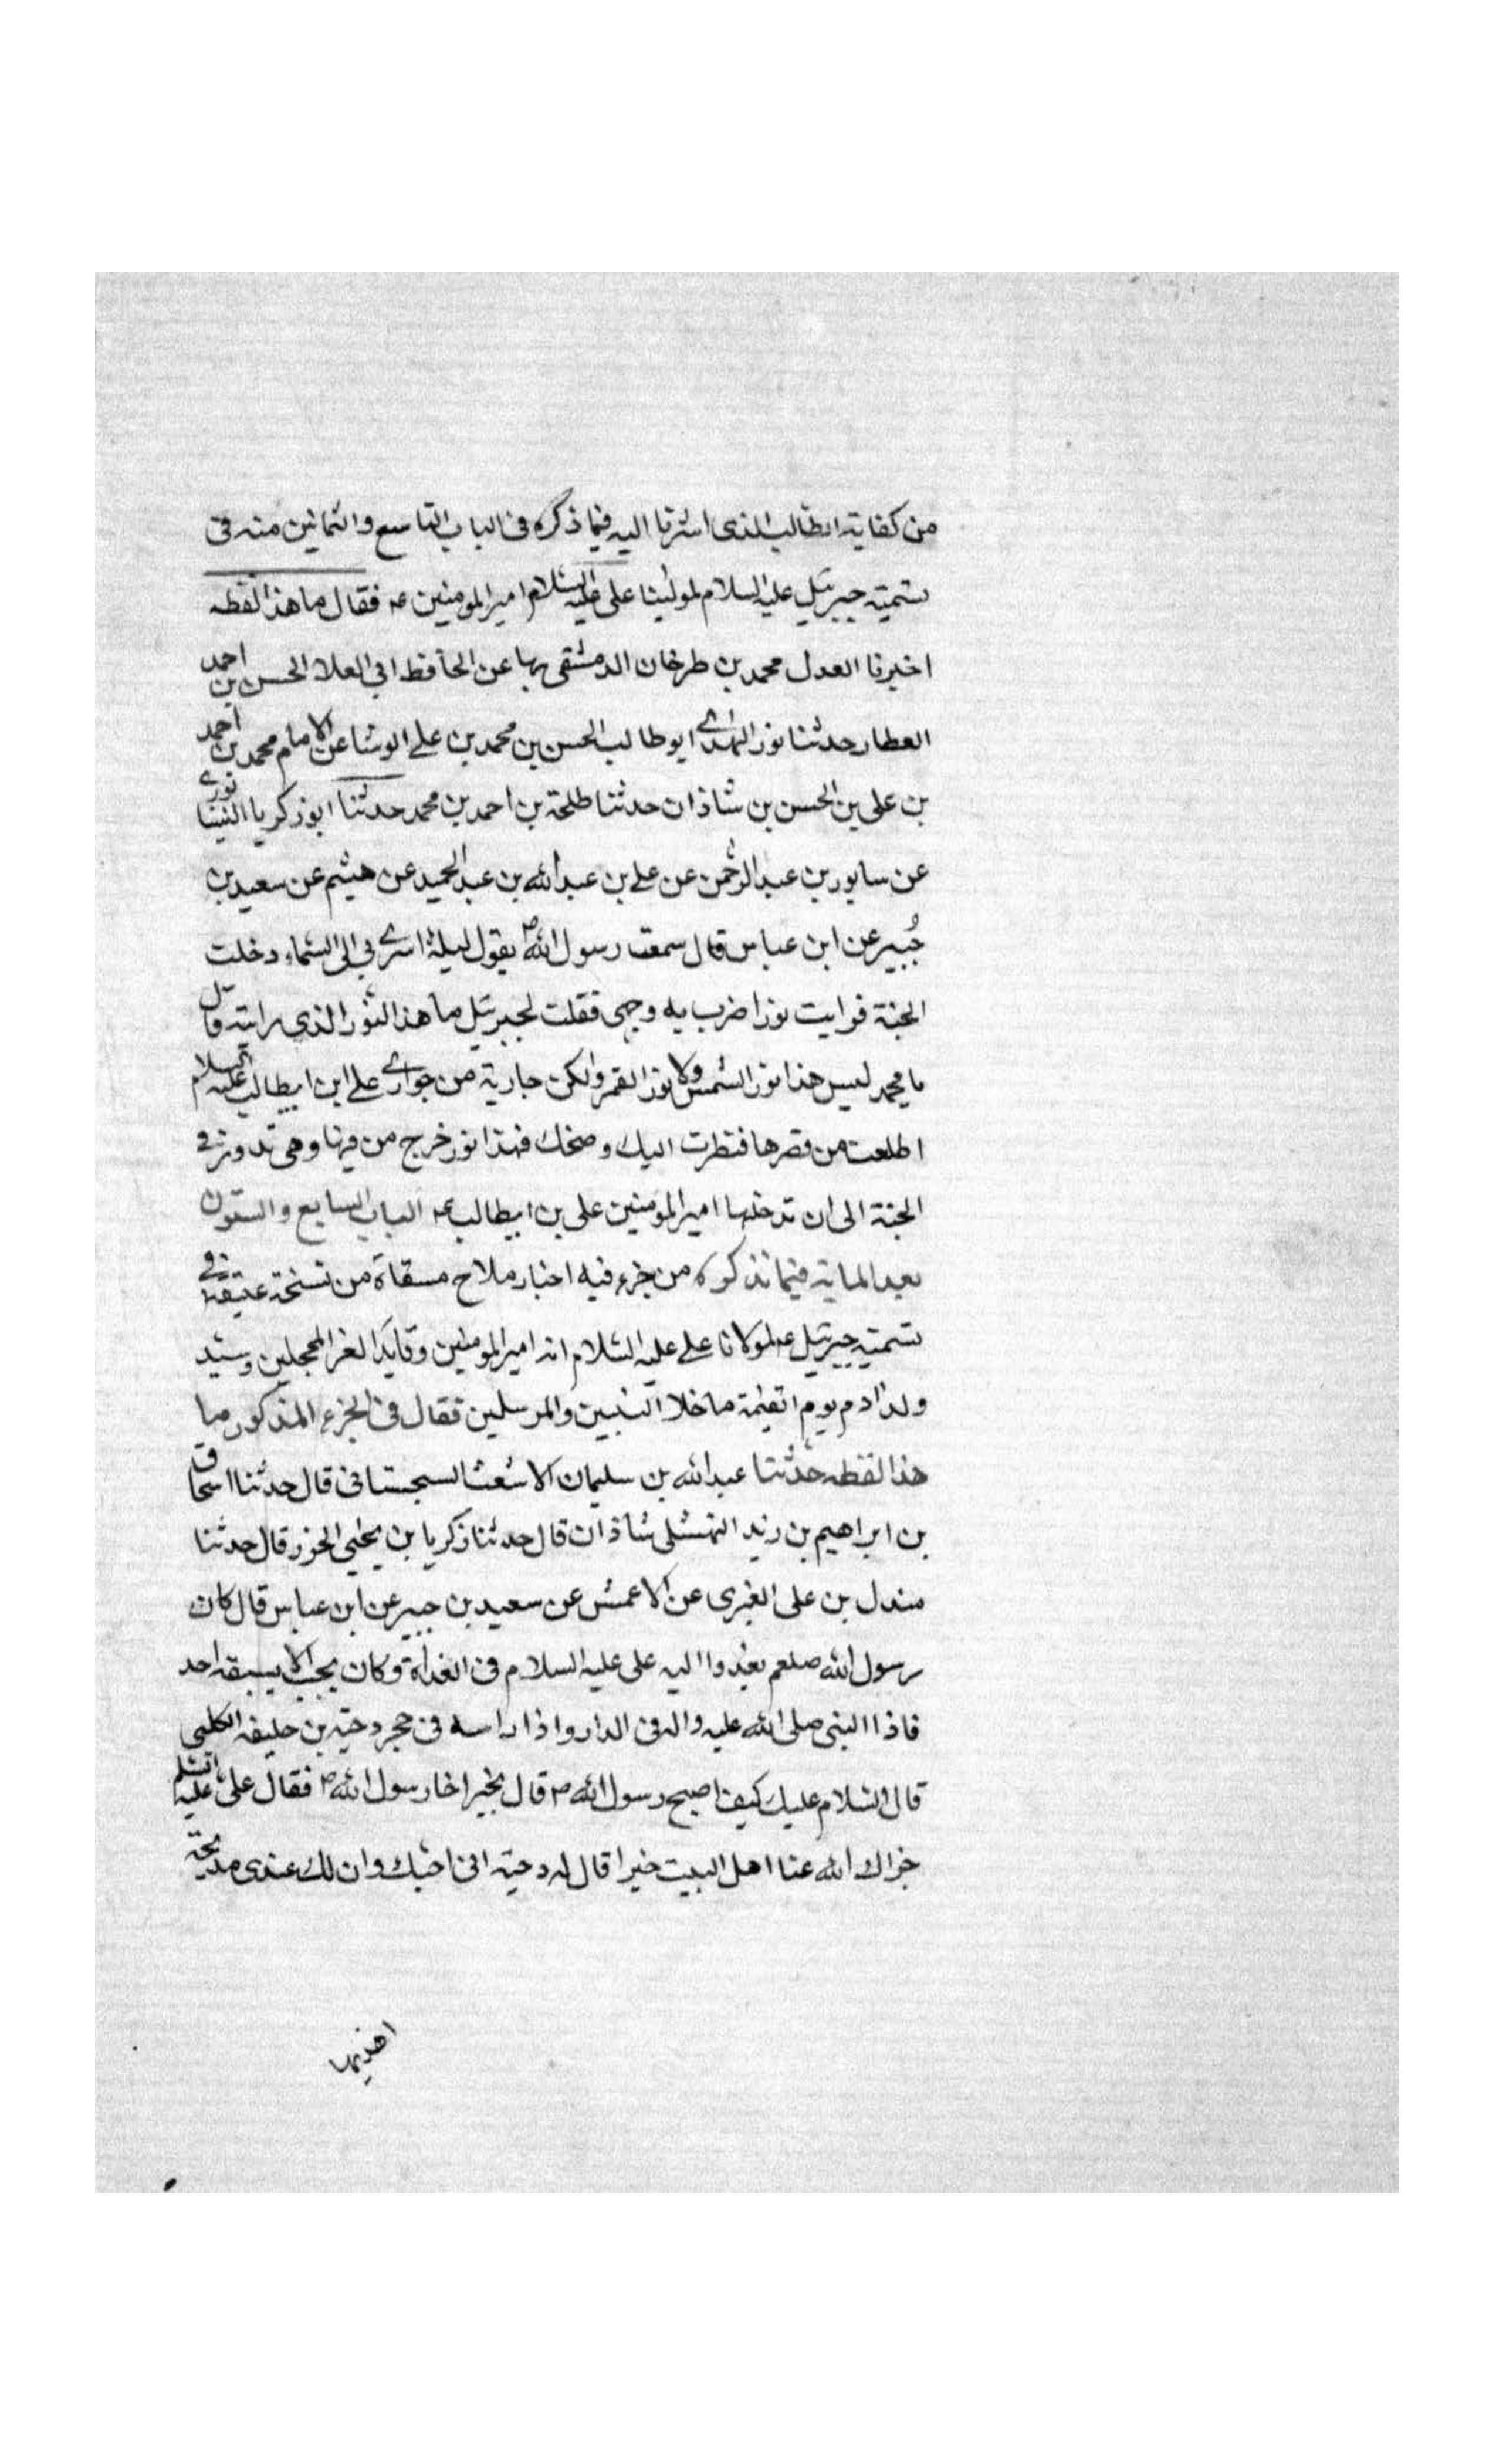 من كفاية الطالب الذى اشرنا اليه فيما ذكره فى الباب التاسع والثمانين منه فى
تسمية جبرئيل عليه السلام لمولينا على عليه السلام امير المومنين عه فقال ما هذا لفظه
اخبرنا العدل محمد بن طرخان الدمشقى بها عن الحافظ ابى العلا الحسن بن احمد
العطار حدثنا نور الهدى ابو طالب الحسن بن محمد بن على الوشا عن الامام محمد بن احمد
بن على بن الحسن بن شاذان حدثنا طلحة بن احمد بن محمد حدثنا ابو زكريا النيشا نورى
عن سابور بن عبد الرحمن عن على بن عبد الله بن عبد الحميد عن هيثم عن سعيد بن
جُبير عن ابن عباس قال سمعت رسول الله ص يقول ليلة اسرى بى الى السماء دخلت
الجنة فرايت نورا ضرب به وجهى فقلت لجبرئيل ما هذا النور الذى رايته قال
يا محمد ليس هذا نور الشمس ولا نور القمر ولكن جارية من جوارى على ابن ابيطالب عليه السلام
اطلعت من قصرها فنظرت اليك وضحك فهذا نور خرج من فيها وهى تدور فى
الجنة الى ان تدخلها امير المومنين على بن ابيطالب عه الباب السابع والستون
بعد الماية فيما نذكره من جزء فيه اخبار ملاح مسقاة من نسخة عتيقة فى
تسمية جبرئيل عه لمولانا على عليه السلام انه امير المومنين وقايد الغر المحجلين وسيد
ولد ادم يوم القيمة ما خلا النبيين والمرسلين فقال فى الجزء المذكور ما
هذا لفظه حدثنا عبد الله بن سليمان الاشعث السجستانى قال حدثنا اسحاق
بن ابراهيم بن زيد النهشلى شاذان قال حدثنا زكريا بن يحيى الخزز قال حدثنا
مندل بن على الغبرى عن الاعمش عن سعيد بن جبير عن ابن عباس قال كان
رسول الله صلعم يغدوا اليه على عليه السلام فى الغداة وكان يحب الا يسبقه احد
فاذا النبى صلى الله عليه واله فى الدار واذا راسه فى حجر دحية بن خليفه الكلبى
قال السلام عليك كيف اصبح رسول الله ص قال بخير اخا رسول الله ص فقال على عليه السلم
جزاك الله عنا اهل البيت خيرا قال له دحية انى احبك وان لك عندى مديحة
اهديها